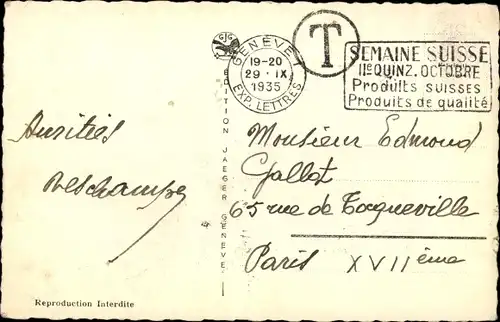 GENÈVE 1
19-20
29·IX
1935
EXP. LETTRES
T
SEMAINE SUISSE
IIe QUINZ. OCTOBRE
Produits suisses
Produits de qualité
Amitiés
Deschamps
EDITION JAEGER GENÈVE
Monsieur Edmond
Gallot
65 rue de Tocqueville
Paris XVIIème
Reproduction Interdite